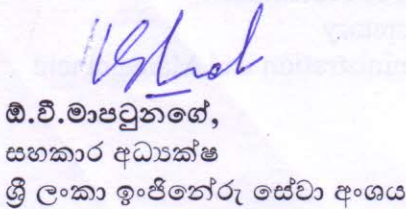 ඔ.වී.මාපටුනගේ,
සහකාර අධ්‍යක්ෂ
ශ්‍රී ලංකා ඉංජිනේරු සේවා අංශය